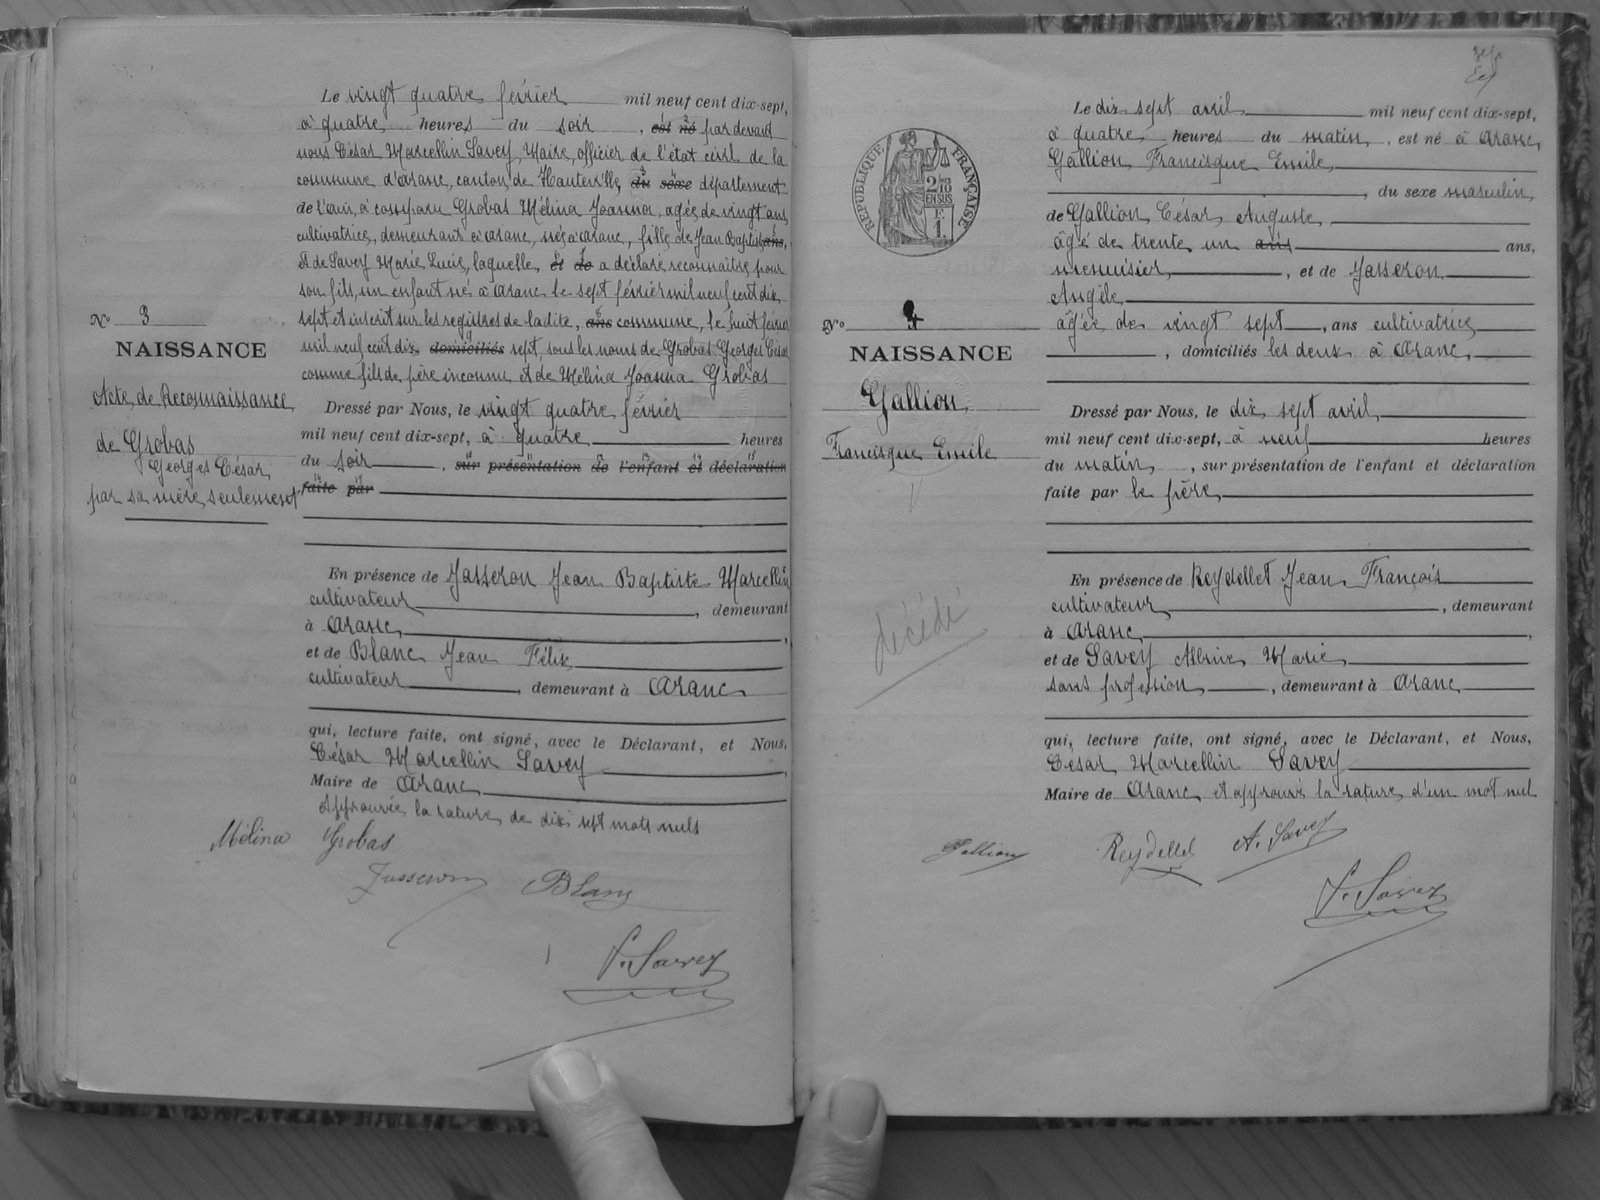 Le vingt quatre février mil neuf cent dix-sept,
à quatre heures du soir, est né par devant
nous César Marcellin Savey, Maire, officier de l'état civil de la
commune d'Aranc, canton de Hauteville, du sexe département
de l'ain, a comparu Grobas Mélina Joanna, agée de vingt ans,
cultivatrice, demeurant à Aranc, née à Aranc, fille de Jean Baptiste ans,
et de Savey Marie Lucie, laquelle, et de a déclaré reconnaître pour
son fils, un enfant né à Aranc le sept février mil neuf cent dix-
sept et inscrit sur les registres de ladite, ans commune, le huit février
mil neuf cent dix domiciliés sept, sous les noms de Grobas Georges César
comme fils de père inconnu et de Mélina Joanna Grobas
No 3
NAISSANCE
Acte de Reconnaissance
de Grobas
Georges César
par sa mère seulement
Dressé par Nous, le vingt quatre février
mil neuf cent dix-sept, à quatre heures
du soir, sur présentation de l'enfant et déclaration
faite par
En présence de Jasseron Jean Baptiste Marcellin
cultivateur, demeurant
à Aranc,
et de Blanc Jean Félix
cultivateur, demeurant à Aranc
qui, lecture faite, ont signé, avec le Déclarant, et Nous,
César Marcellin Savey,
Maire de Aranc
Approuvée la rature de dix sept mots nuls
Mélina Grobas
Jasseron Blanc
Savey
RÉPUBLIQUE FRANÇAISE
2/10
EN SUS
F.
1.
Le dix sept avril mil neuf cent dix-sept,
à quatre heures du matin, est né à Aranc,
Gallion Francisque Emile
, du sexe masculin,
de Gallion César Auguste,
âgé de trente un ans ans,
menuisier, et de Jasseron
Angèle
âgée de vingt sept, ans cultivatrice
, domiciliés les deux à Aranc,
No 4
NAISSANCE
Gallion
Francisque Emile
décédé
Dressé par Nous, le dix sept avril,
mil neuf cent dix-sept, à neuf heures
du matin, sur présentation de l'enfant et déclaration
faite par le père,
En présence de Reydellet Jean François
cultivateur, demeurant
à Aranc,
et de Savey Albine Marie
sans profession, demeurant à Aranc
qui, lecture faite, ont signé, avec le Déclarant, et Nous,
César Marcellin Savey
Maire de Aranc, et approuvé la rature d'un mot nul
Gallion Reydellet A. Savey
Savey